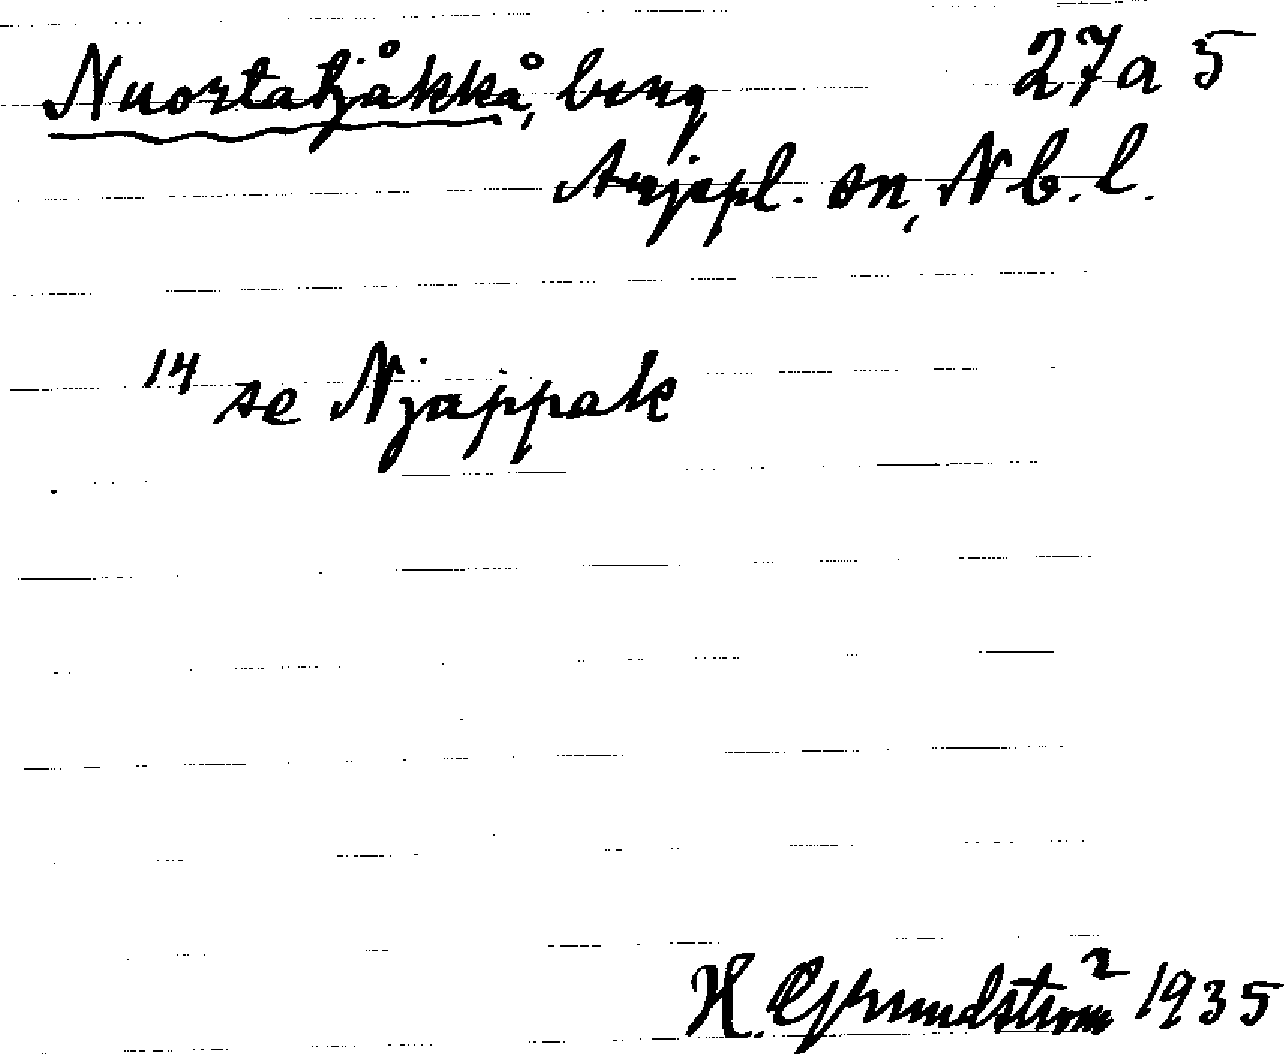 Nuortatjåkkå, berg 27a 5
Arjepl. sn, Nb. l.
14 se Njappak
H. Grundström 2 1935